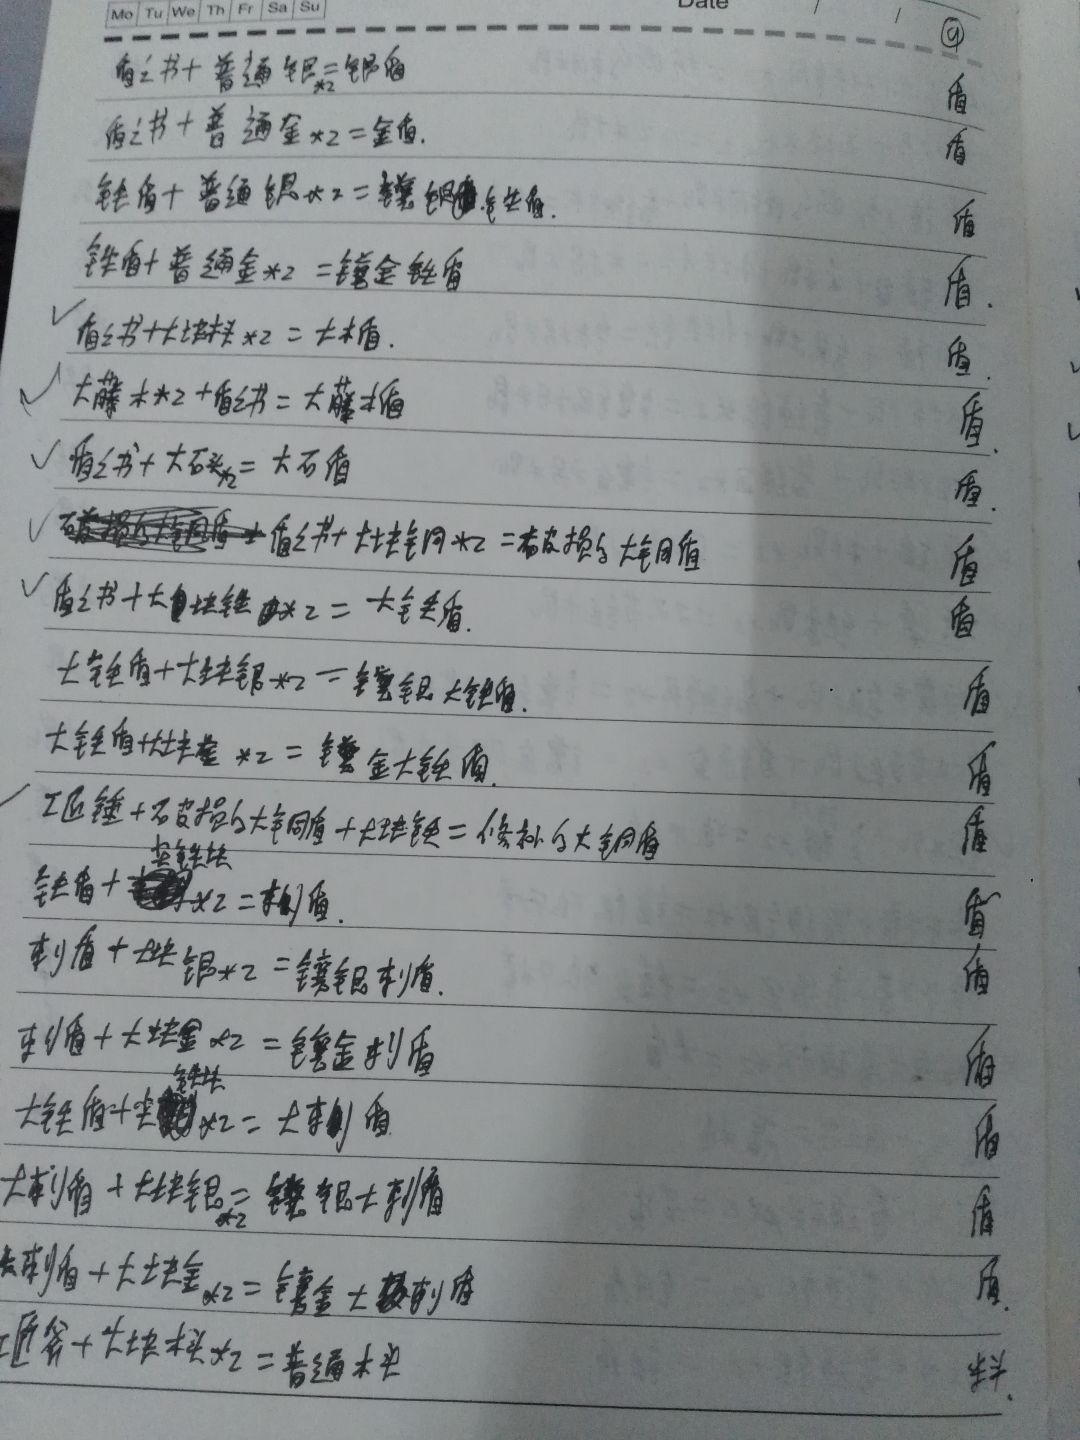 Mo Tu We Th Fr Sa Su Date / /
⑨
盾之书+普通银*2=银盾 盾
盾之书+普通金*2=金盾. 盾
铁盾+普通银*2=镶银铁盾. 盾
铁盾+普通金*2=镶金铁盾 盾.
✓ 盾之书+大块木头*2=大木盾. 盾.
✓ 大藤木*2+盾之书=大藤木盾 盾.
✓ 盾之书+大石头*2=大石盾 盾.
✓ 盾之书+大块铜*2=破损的大铜盾 盾
✓ 盾之书+大块铁*2=大铁盾. 盾
大铁盾+大块银*2=镶银大铁盾. 盾
大铁盾+大块金*2=镶金大铁盾. 盾
✓ 工匠锤+破损的大铜盾+大块铁=修补的大铜盾 盾
铁盾+尖铁块*2=刺盾. 盾
刺盾+大块银*2=镶银刺盾. 盾
刺盾+大块金*2=镶金刺盾 盾
大铁盾+尖铁块*2=大刺盾 盾
大刺盾+大块银*2=镶银大刺盾 盾
大刺盾+大块金*2=镶金大刺盾 盾.
工匠斧+大块木头*2=普通木头